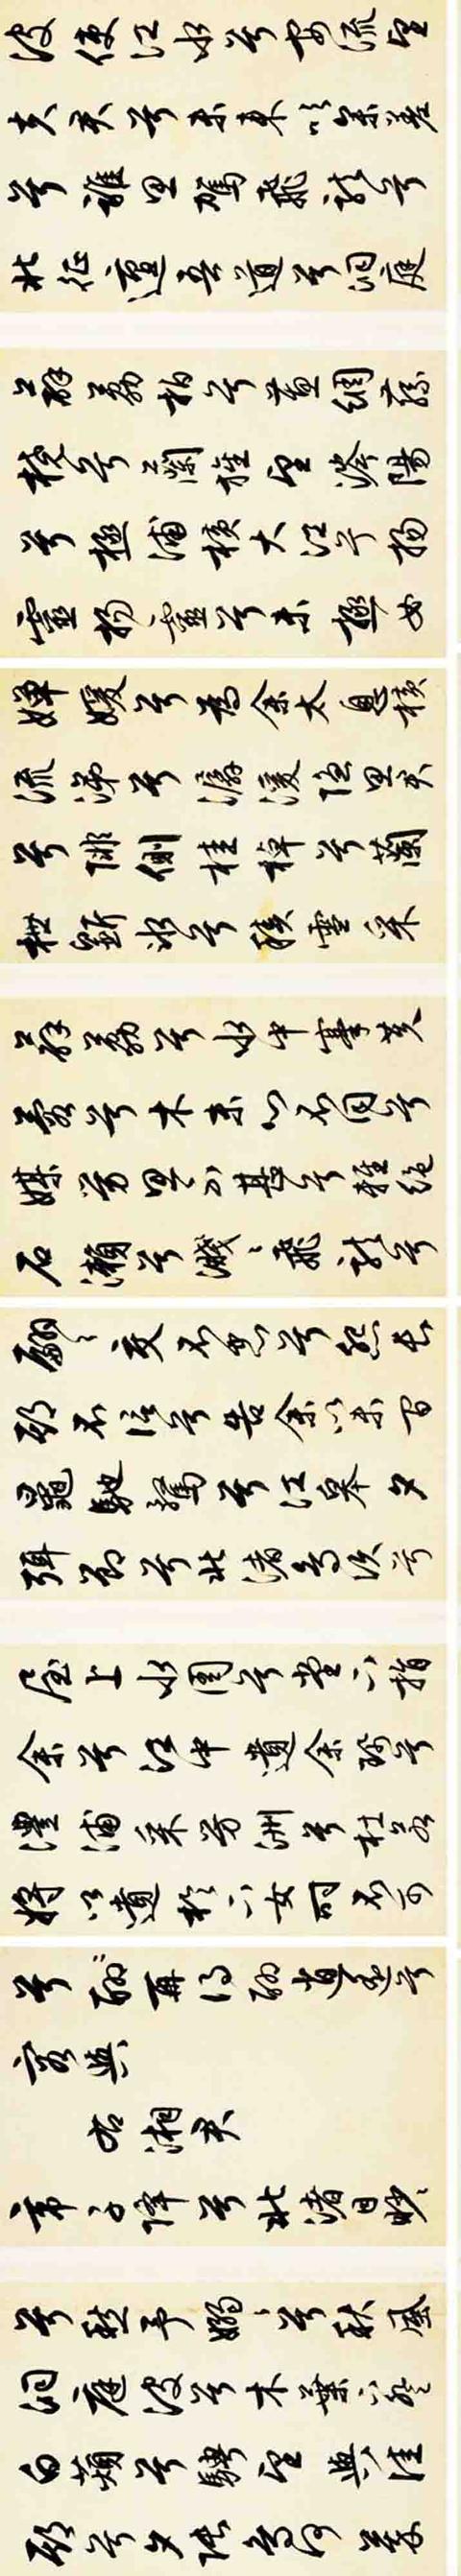 波使江水兮安流望
夫君兮未來吹參差
兮誰思駕飛龍兮
北征邅吾道兮洞庭
薜荔柏兮蕙綢蓀
橈兮蘭旌望涔陽
兮極浦橫大江兮揚
靈揚靈兮未極女
嬋媛兮為余太息橫
流涕兮潺湲隱思君
兮悱側桂棹兮蘭
枻斲冰兮積雪采
薜荔兮水中搴芙
蓉兮木末心不同兮
媒勞恩不甚兮輕絕
石瀨兮淺〻飛龍兮
翩〻交不忠兮怨長
期不信兮告余以不閒
鼂馳騖兮江皋夕
弭節兮北渚鳥次兮
屋上水周兮堂下捐
余兮江中遺余珮兮
澧浦采芳洲兮杜若
將以遺於下女時不可
兮聊再得聊逍遙兮
容與
右湘君
帝子降兮北渚目眇〻
兮愁予嫋〻兮秋風
洞庭波兮木葉下登
白薠兮騁望與佳
期兮夕張鳥何萃